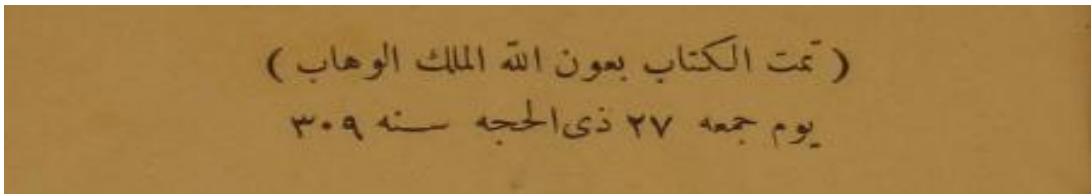 ( تمت الكتاب بعون الله الملك الوهاب )
يوم جمعه ٢٧ ذى الحجه سنه ٣٠٩